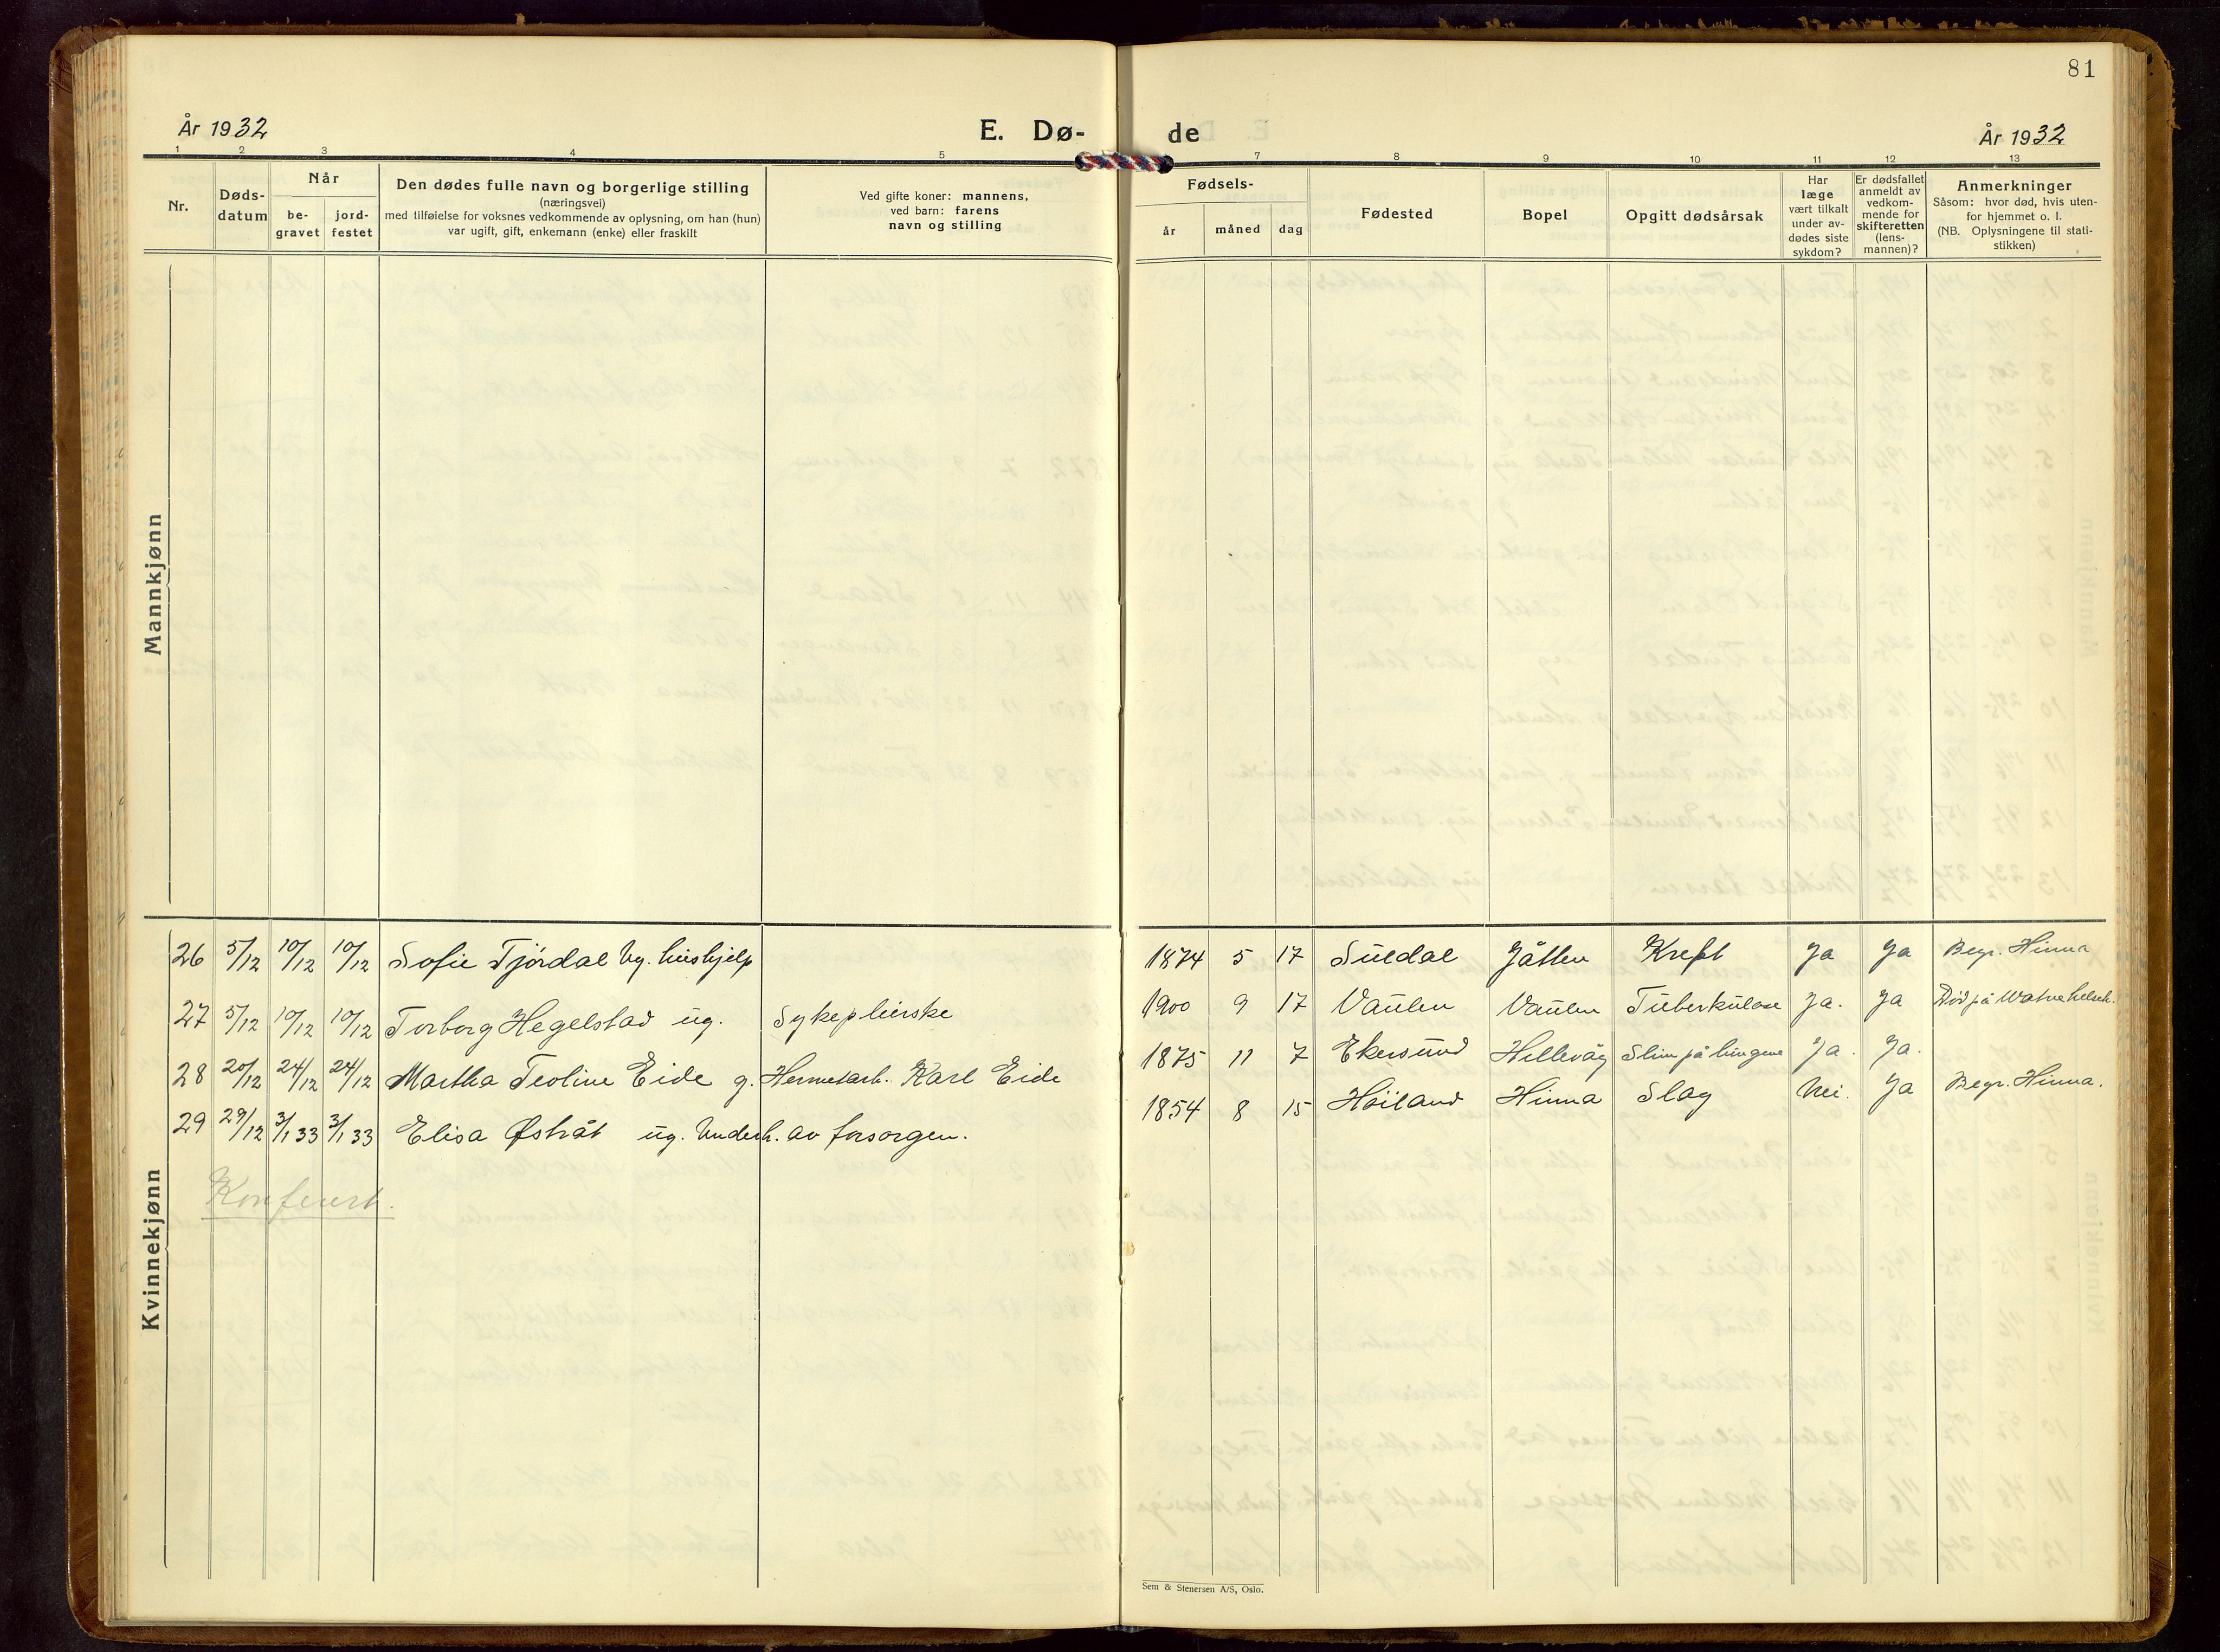 81
År 1932
E. Dø-
de
År 1932
1 2 3 4 5 7 8 9 10 11 12 13
Nr.
Døds-
datum
Når
be-
gravet
jord-
festet
Den dødes fulle navn og borgerlige stilling
(næringsvei)
med tilføielse for voksnes vedkommende av oplysning, om han (hun)
var ugift, gift, enkemann (enke) eller fraskilt
Ved gifte koner: mannens,
ved barn: farens
navn og stilling
Fødsels-
år
måned
dag
Fødested
Bopel
Opgitt dødsårsak
Har
læge
vært tilkalt
under av-
dødes siste
sykdom?
Er dødsfallet
anmeldt av
vedkom-
mende for
skifteretten
(lens-
mannen)?
Anmerkninger
Såsom: hvor død, hvis uten-
for hjemmet o. l.
(NB. Oplysningene til stati-
stikken)
Mannkjønn
Kvinnekjønn
26 5/12 10/12 10/12 Sofie Tjørdal Ug. hushjelp 1874 5 17 Suldal Jåtten Kreft Ja Ja Begr. Hinna
27 5/12 10/12 10/12 Torborg Hegelstad ug. Sykepleierske 1900 9 17 Vaulen Vaulen Tuberkulose Ja. Ja Død på Watne
28 20/12 24/12 24/12 Martha Teoline Eide g. Hermetarb. Karl Eide 1875 11 7 Ekersund Hillevåg Slim på lungene Ja. Ja.
29 29/12 3/1 33 3/1 33 Elisa Østråt ug. Underh. av forsorgen. 1854 8 15 Høiland Hinna Slag Nei. Ja Begr. Hinna.
Konferert.
Sem & Stenersen A/S, Oslo.